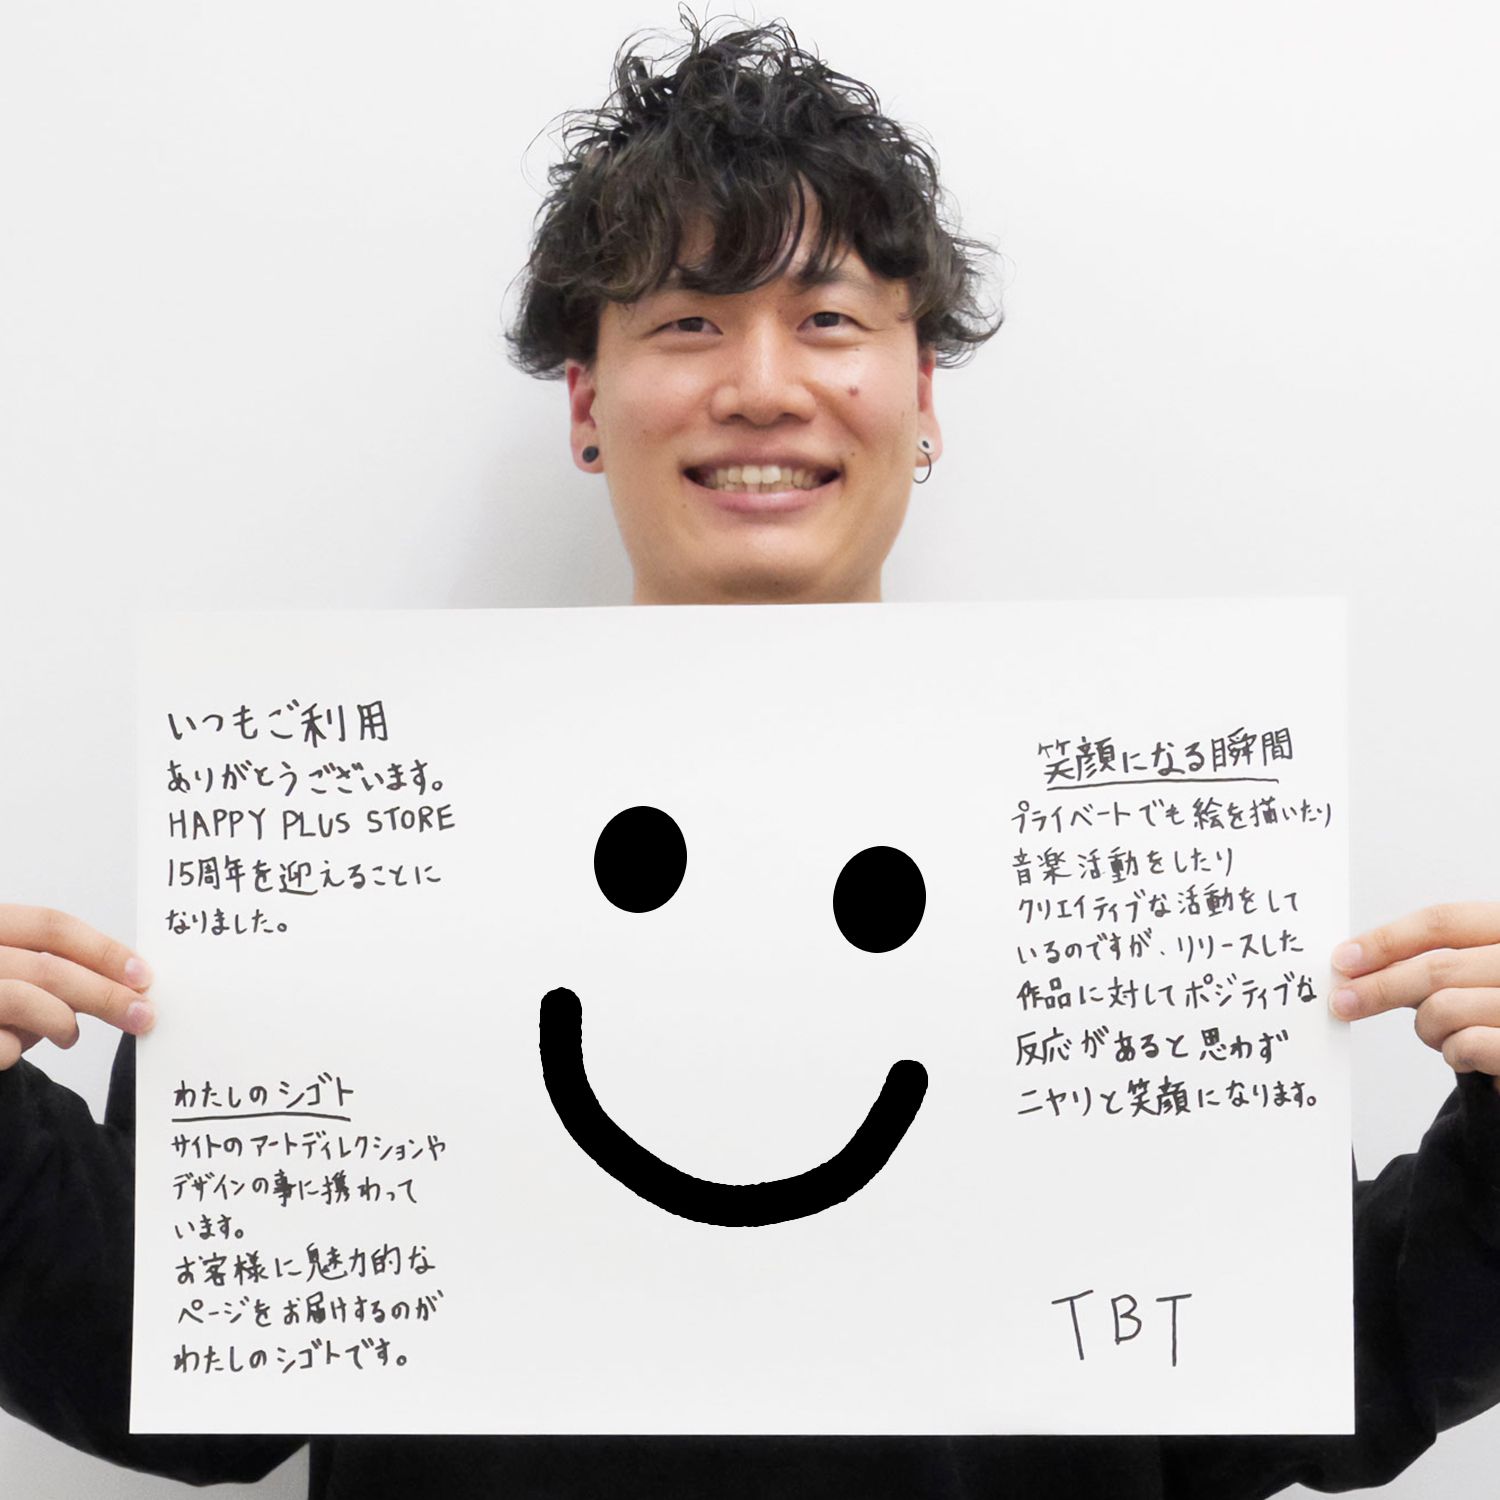 いつもご利用
ありがとうございます。
HAPPY PLUS STORE
15周年を迎えることに
なりました。
わたしのシゴト
サイトのアートディレクションや
デザインの事に携わって
います。
お客様に魅力的な
ページをお届けするのが
わたしのシゴトです。
笑顔になる瞬間
プライベートでも絵を描いたり
音楽活動をしたり
クリエイティブな活動をして
いるのですが、リリースした
作品に対してポジティブな
反応があると思わず
ニヤリと笑顔になります。
TBT